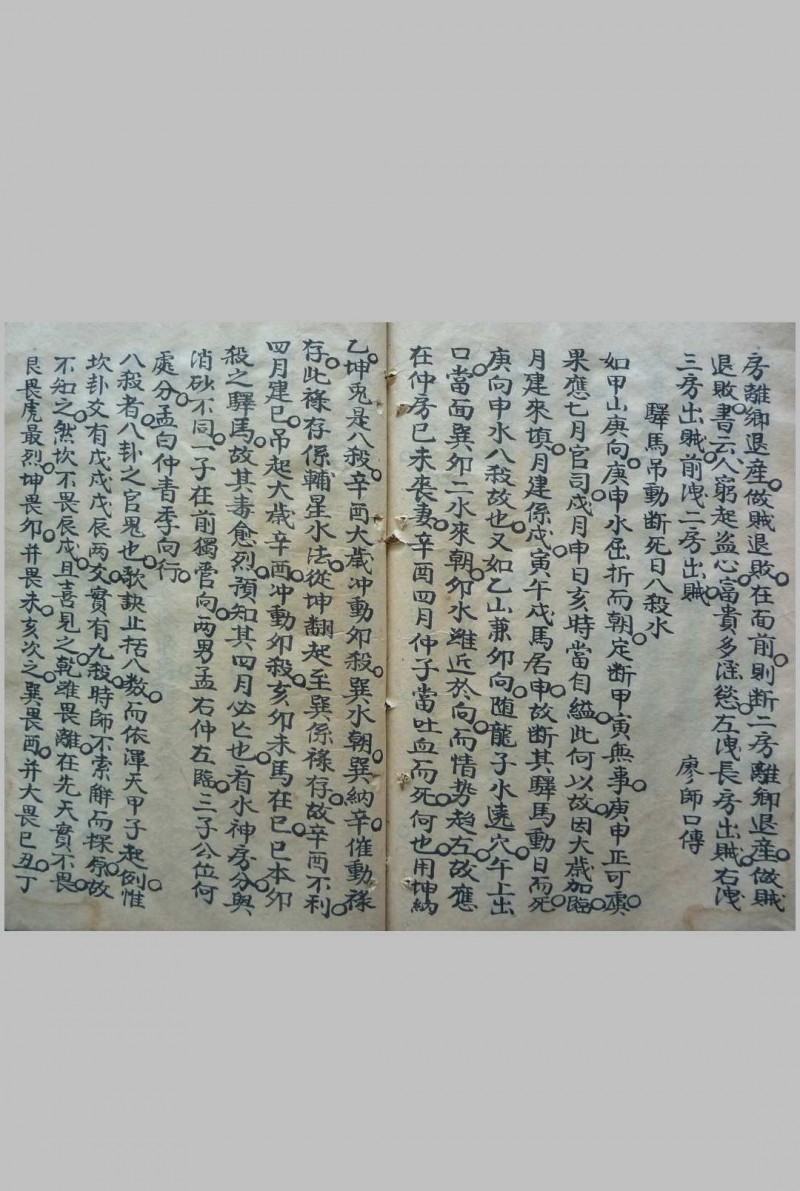 房離鄉退產。做賊退敗。在面前。則断二房離鄉退產。做賊
退敗。書云。人窮起盜心。富貴多淫慾。左洩長房出賊。右洩
三房出賊。前洩二房出賊。
驛馬吊動断死日八殺水　廖師口傳
如甲山庚向。庚申水屈折而朝。定断甲寅無事。庚申正可虞。
果應七月官司。戌月申日亥時當自縊。此何以故。因大歲加臨。
月建來填。月建係戌。寅午戌馬居申。故断其驛馬動日而死。
庚向申水八殺故也。又如乙山兼卯向。随龍子水遶穴。午上出
口。當面巽卯二水來朝。卯水雖近於向。而情势趋左。故應
在仲房。已未丧妻。辛酉四月仲子當吐血而死。何也。用坤納
乙。坤兎是八殺。辛酉大歲冲動卯殺。巽水朝。巽納辛。催動祿
存。此祿存係輔星水法。從坤翻起。至巽係祿存。故辛酉不利。
四月建巳。吊起大歲辛酉。冲動卯殺。亥卯未馬在巳。巳本卯
殺之驛馬。故其毒愈烈。預知其四月必亡也。看水神房分與
消砂不同。一子在前獨管向。两男孟右仲左臨。三子公位何
處分。孟白仲青季向行。
八殺者。八卦之官鬼也。歌訣止括八数。而依渾天甲子起例。惟
坎卦爻有戊戌戊辰两爻。實有九殺。時師不索解而探原。故
不知之。然坎不畏辰戌。且喜見之。乾雖畏離。在先天實不畏。
艮畏虎最烈。坤畏卯。并畏未亥次之。巽畏酉。并大畏巳丑。丁